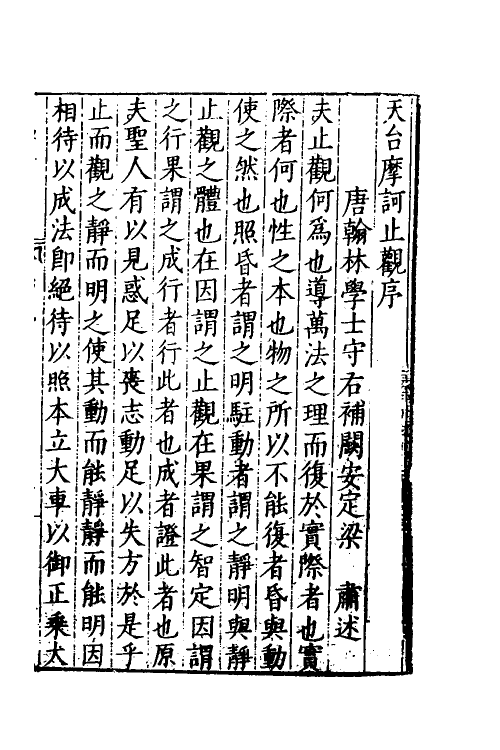 天台摩訶止觀序
唐翰林學士守右補闕安定梁　肅述
夫止觀何爲也導萬法之理而復於實際者也實
際者何也性之本也物之所以不能復者昏與動
使之然也照昏者謂之明駐動者謂之靜明與靜
止觀之體也在因謂之止觀在果謂之智定因謂
之行果謂之成行者行此者也成者證此者也原
夫聖人有以見惑足以喪志動足以失方於是乎
止而觀之靜而明之使其動而能靜靜而能明因
相待以成法卽絕待以照本立大車以御正乘大